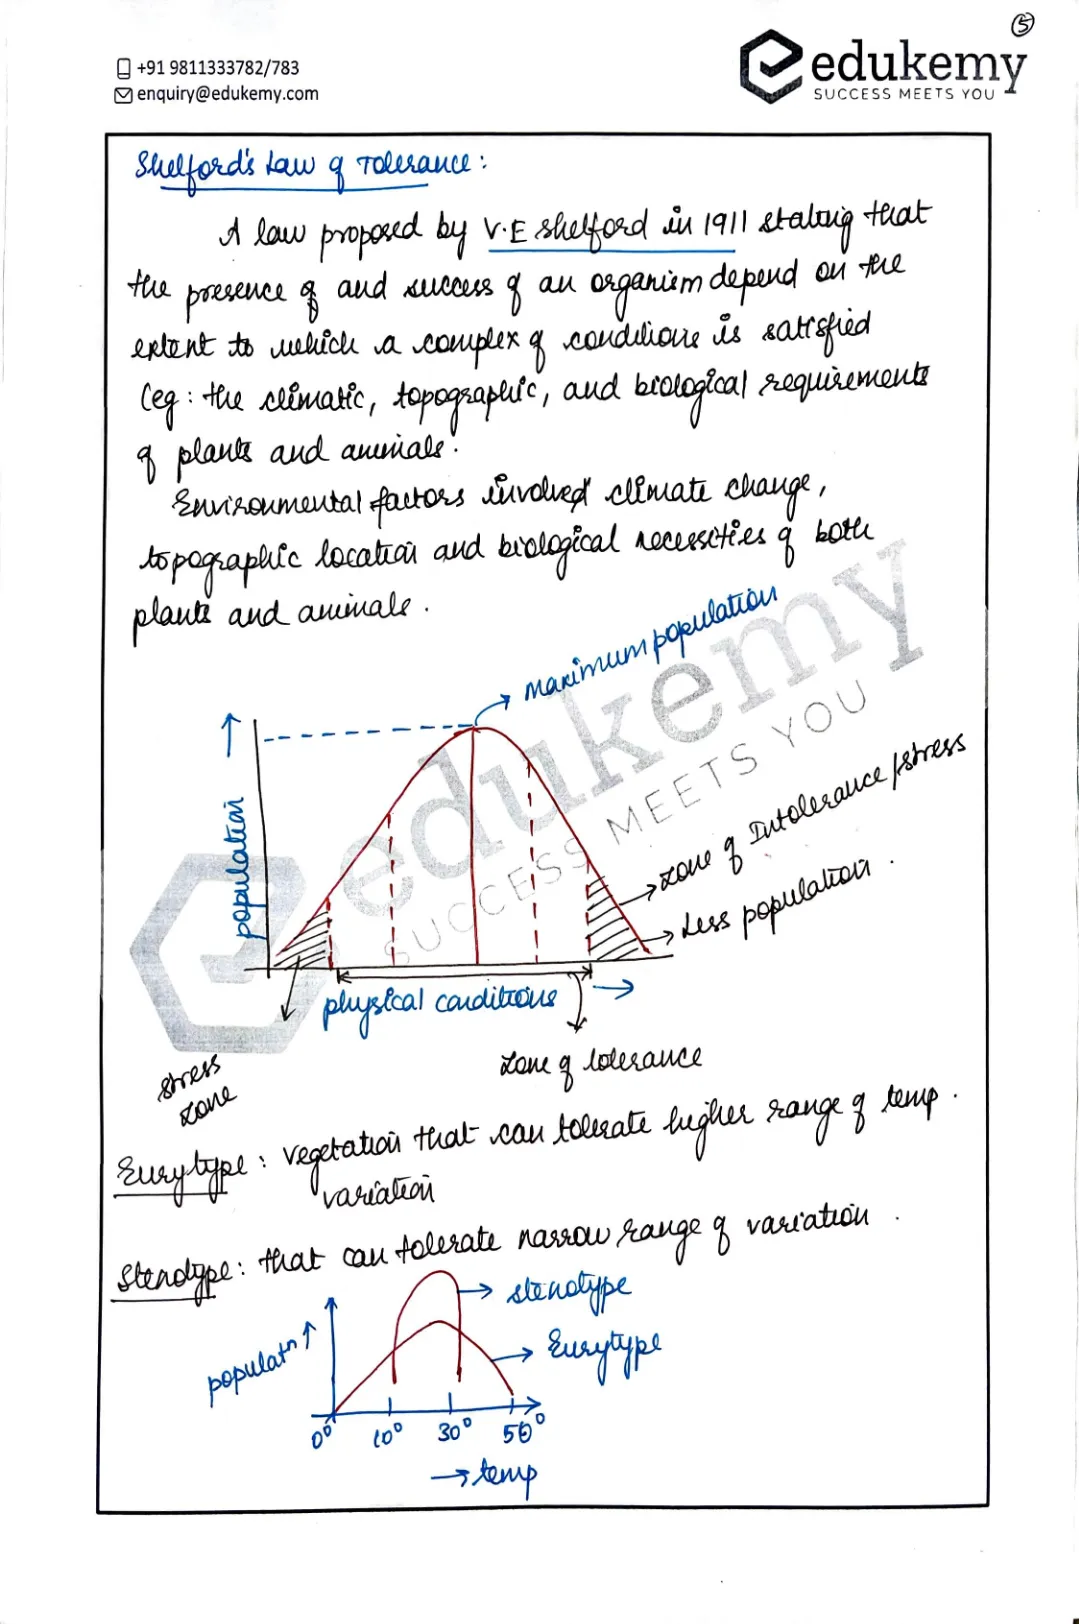 5
+91 9811333782/783
enquiry@edukemy.com
edukemy
SUCCESS MEETS YOU
Shelford's Law of Tolerance :
A law proposed by V.E Shelford in 1911 stating that
the presence of and success of an organism depend on the
extent to which a complex of conditions is satisfied
(eg : the climatic, topographic, and biological requirements
of plants and animals.
Environmental factors involved climate change,
topographic location and biological necessities of both
plants and animals.
Maximum population
population
zone of Intolerance/stress
Less population.
physical conditions
stress
zone
zone of tolerance
edukemy
SUCCESS MEETS YOU
Eurytype : vegetation that can tolerate higher range of temp.
variation
Stenotype : that can tolerate narrow range of variation.
stenotype
Eurytype
populatn
0° 10° 30° 50°
temp